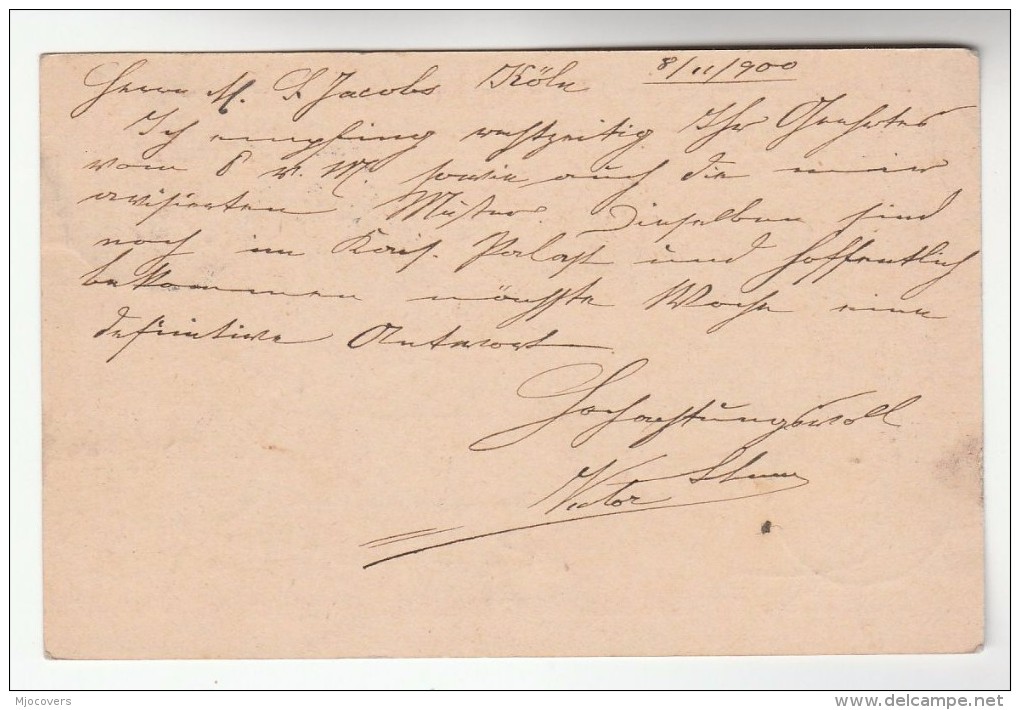 Herrn M. S. Jacobs Köln 8/11/900
Ich empfing rechtzeitig Ihr Geehrtes
vom 6 v. M. sowie auch die mir
avisierten Muster. Dieselben sind
noch im Kais. Palast und hoffentlich
bekommen nächste Woche eine
definitive Antwort
Hochachtungsvoll
Victor
Mjocovers
delcampe.net